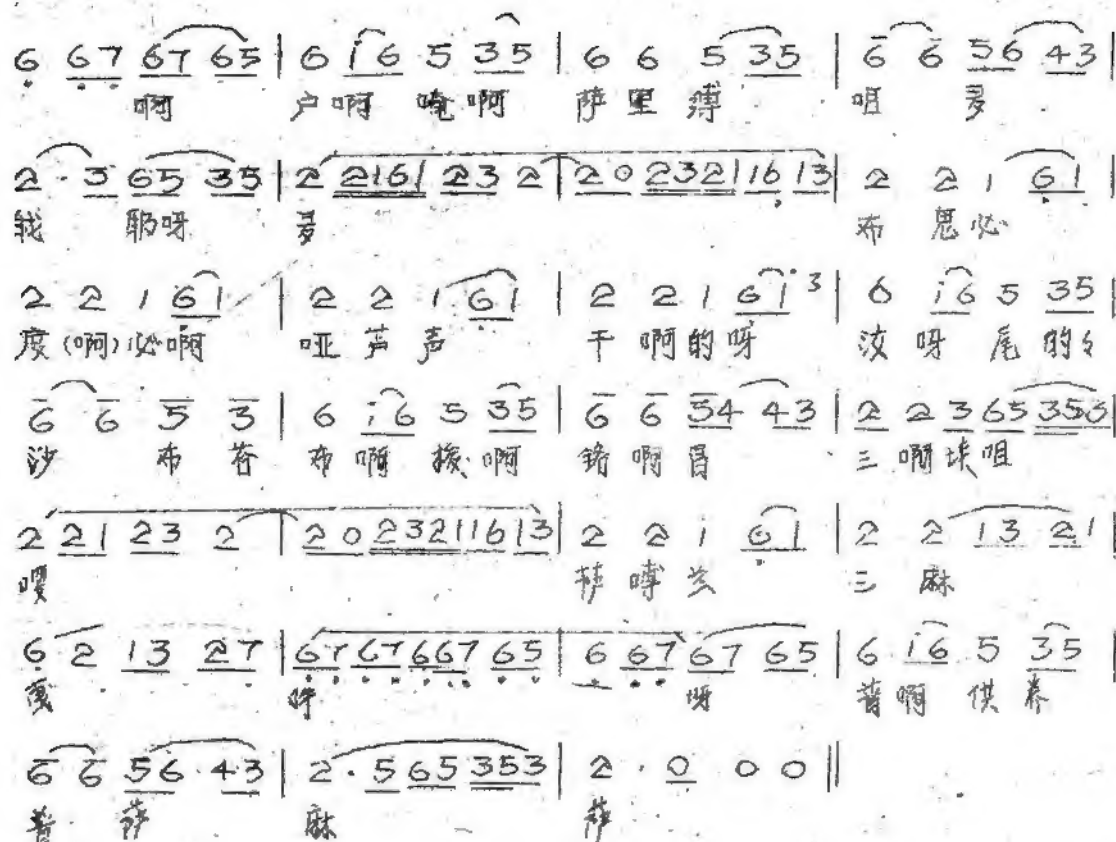 6 67 67 65 | 6 i6 5 35 | 6 6 5 35 | 6 6 56 43 |
啊 户啊 唵啊 萨里嚩 咀 多
2 · 3 65 35 | 2 2161 23 2 | 20 2321 16 13 | 2 2 1 61 |
我 耶呀 多 布 思必
2 2 1 61 | 2 2 1 61 | 2 2 1 61 3 | 6 i6 5 35 |
度(啊)必啊 哑 芦 声 干 啊的呀 汝 呀 尾 的
6 6 5 3 | 6 i6 5 35 | 6 6 54 43 | 2 2 3 65 353 |
沙 布 答 布啊 拨啊 啊 三 啊埃咀
2 21 23 2 | 20 2321 16 13 | 2 2 1 61 | 2 2 13 21 |
嘤 萨嚩兰 三 麻
6 2 13 27 | 67 67 667 65 | 6 67 67 65 | 6 i6 5 35 |
吽 呀 普啊 供养
6 6 56 43 | 2 · 5 65 353 | 2 · 0 0 0 ‖
普 萨 麻 萨